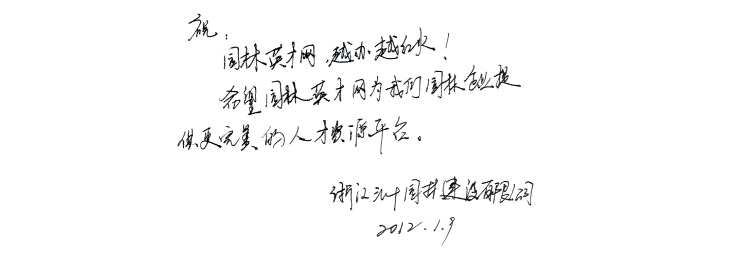 祝:
园林英才网,越办越红火!
希望园林英才网为我们园林企业提
供更完美的人才资源平台。
浙江 园林建设有限公司
2012.1.9